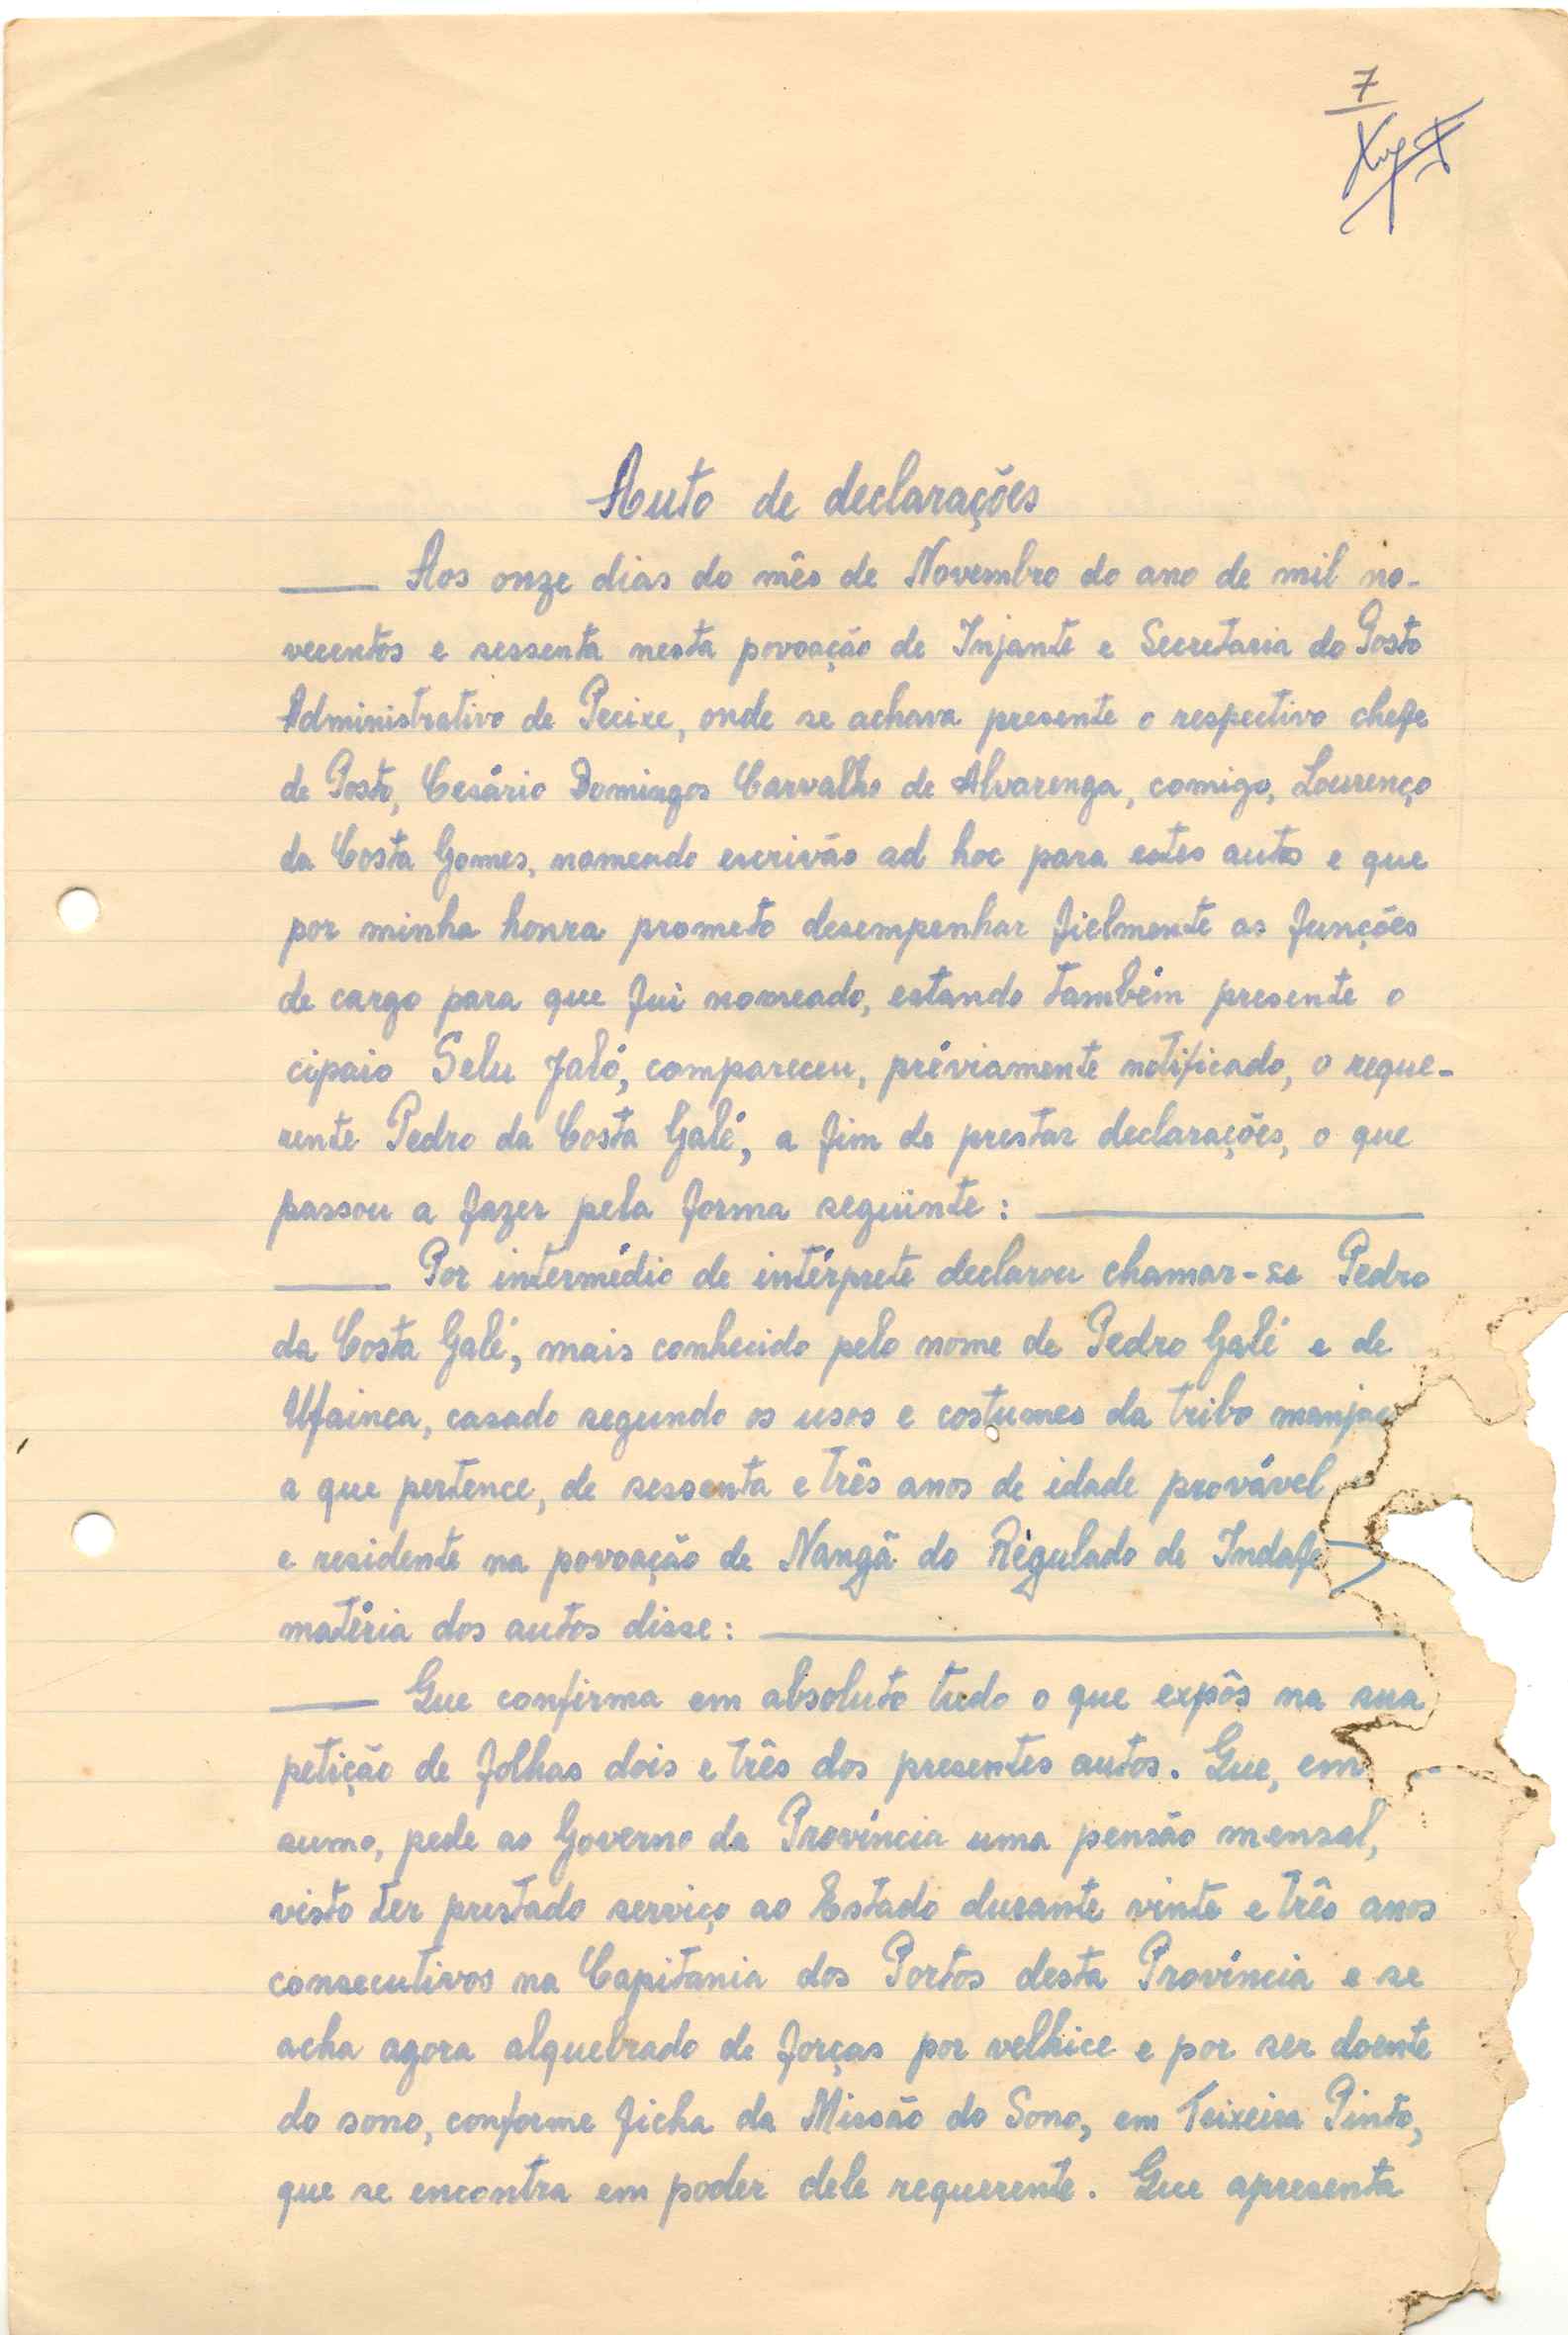 7
Auto de declarações
Aos onze dias do mês de Novembro do ano de mil no-
vecentos e sessenta nesta povoação de Injante e Secretaria do Posto
Administrativo de Pecixe, onde se achava presente o respectivo chefe
de Posto, Cesário Domingos Carvalho de Alvarenga, comigo, Lourenço
da Costa Gomes, nomeado escrivão ad hoc para estes autos e que
por minha honra prometo desempenhar fielmente as funções
de cargo para que fui nomeado, estando também presente o
cipaio Selu Jaló, compareceu, préviamente notificado, o reque-
rente Pedro da Costa Galé, a fim de prestar declarações, o que
passou a fazer pela forma seguinte:
Por intermédio de intérprete declarou chamar-se Pedro
da Costa Galé, mais conhecido pelo nome de Pedro Galé e de
Ufainca, casado segundo os usos e costumes da tribo manjac
a que pertence, de sessenta e três anos de idade provável
e residente na povoação de Nangã do Régulado de Indafe
matéria dos autos disse:
Que confirma em absoluto tudo o que expôs na sua
petição de folhas dois e três dos presentes autos. Que, em
sumo, pede ao Governo da Província uma pensão mensal,
visto ter prestado serviço ao Estado durante vinte e três anos
consecutivos na Capitania dos Portos desta Província e se
acha agora alquebrado de forças por velhice e por ser doente
do sono, conforme ficha da Missão do Sono, em Teixeira Pinto,
que se encontra em poder dele requerente. Que apresenta